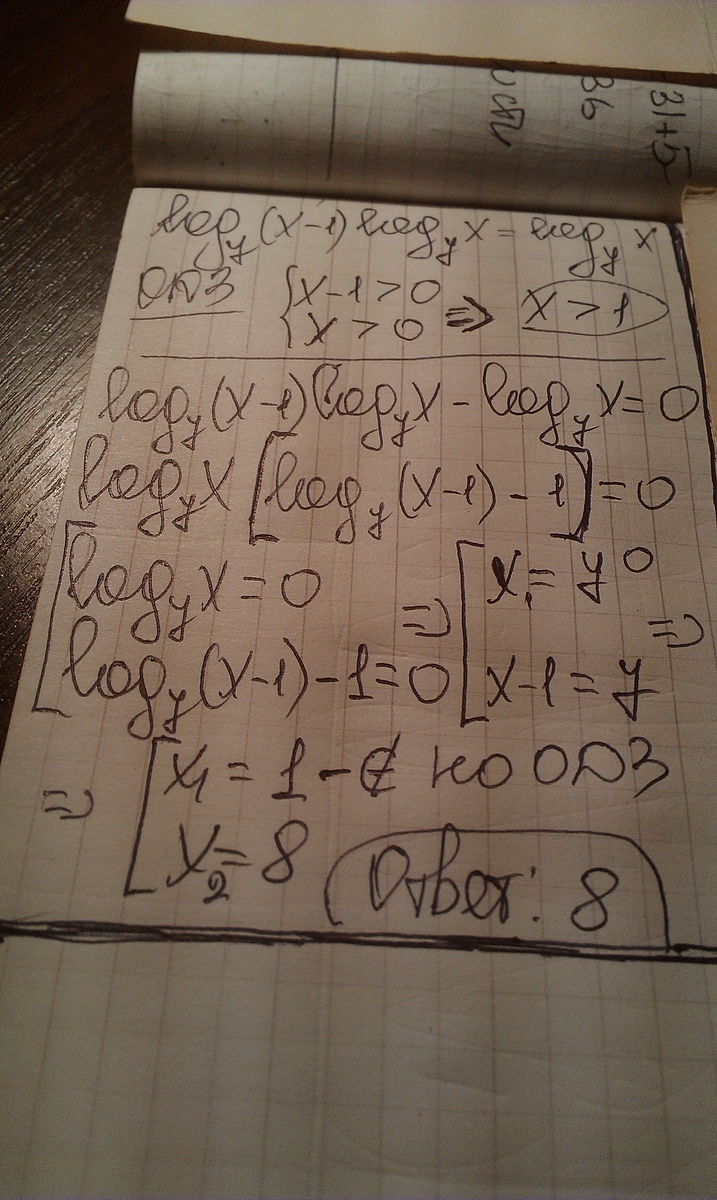 -31+5
36
log₇(x-1) log₇ x = log₇ x
ОДЗ { x-1 > 0 ⇒ x > 1
{ x > 0
log₇(x-1) log₇ x - log₇ x = 0
log₇ x [log₇(x-1) - 1] = 0
[ log₇ x = 0 ⇒ [ x₁ = 7⁰ ⇒
[ log₇(x-1) - 1 = 0 [ x-1 = 7
⇒ [ x₁ = 1 - ∉ по ОДЗ
[ x₂ = 8 Ответ: 8